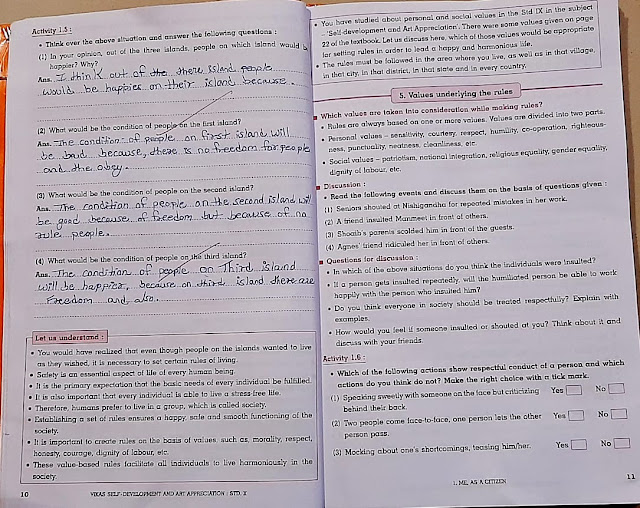 Activity 1.5 :
• Think over the above situation and answer the following questions :
(1) In your opinion, out of the three islands, people on which island would be
happier? Why?
Ans. I think out of the there island people
would be happies on their island because.
(2) What would be the condition of people on the first island?
Ans. The condition of people on first island will
be bad because, there is no freedom for people
and the obey.
(3) What would be the condition of people on the second island?
Ans. The condition of people on the second island will
be good because of freedom but because of no
rule people.
(4) What would be the condition of people on the third island?
Ans. The condition of people on Third island
will be happier, because on third island there are
Freedom and also.
Let us understand :
• You would have realized that even though people on the islands wanted to live
as they wished, it is necessary to set certain rules of living.
• Safety is an essential aspect of life of every human being.
• It is the primary expectation that the basic needs of every individual be fulfilled.
• It is also important that every individual is able to live a stress-free life.
• Therefore, humans prefer to live in a group, which is called society.
• Establishing a set of rules ensures a happy, safe and smooth functioning of the
society.
• It is important to create rules on the basis of values, such as, morality, respect,
honesty, courage, dignity of labour, etc.
• These value-based rules facilitate all individuals to live harmoniously in the
society.
10 VIKAS SELF-DEVELOPMENT AND ART APPRECIATION : STD. X
• You have studied about personal and social values in the Std IX in the subject
– 'Self-development and Art Appreciation'. There were some values given on page
22 of the textbook. Let us discuss here, which of those values would be appropriate
for setting rules in order to lead a happy and harmonious life.
• The rules must be followed in the area where you live, as well as in that village,
in that city, in that district, in that state and in every country.
5. Values underlying the rules
■ Which values are taken into consideration while making rules?
• Rules are always based on one or more values. Values are divided into two parts.
• Personal values – sensitivity, courtesy, respect, humility, co-operation, righteous-
ness, punctuality, neatness, cleanliness, etc.
• Social values – patriotism, national integration, religious equality, gender equality,
dignity of labour, etc.
■ Discussion :
• Read the following events and discuss them on the basis of questions given :
(1) Seniors shouted at Nishigandha for repeated mistakes in her work.
(2) A friend insulted Manmeet in front of others.
(3) Shoaib's parents scolded him in front of the guests.
(4) Agnes' friend ridiculed her in front of others.
■ Questions for discussion :
• In which of the above situations do you think the individuals were insulted?
• If a person gets insulted repeatedly, will the humiliated person be able to work
happily with the person who insulted him?
• Do you think everyone in society should be treated respectfully? Explain with
examples.
• How would you feel if someone insulted or shouted at you? Think about it and
discuss with your friends.
Activity 1.6 :
• Which of the following actions show respectful conduct of a person and which
actions do you think do not? Make the right choice with a tick mark.
(1) Speaking sweetly with someone on the face but criticizing Yes No
behind their back.
(2) Two people come face-to-face, one person lets the other Yes No
person pass.
(3) Mocking about one's shortcomings, teasing him/her. Yes No
1. ME, AS A CITIZEN 11